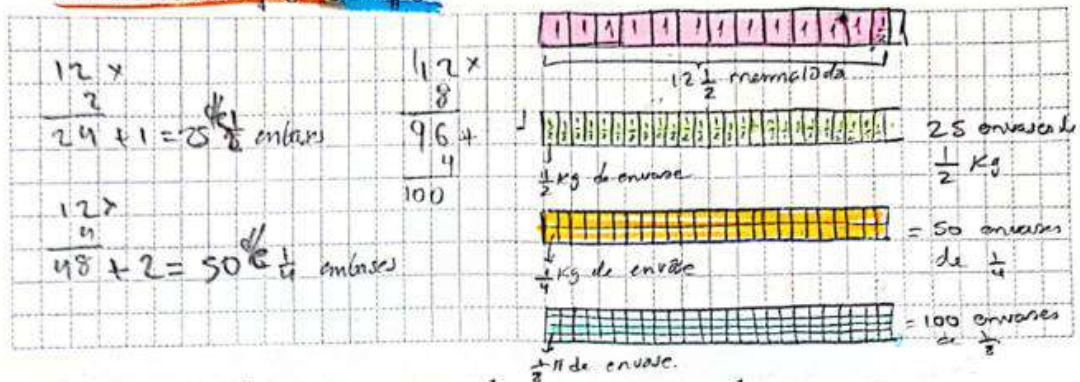 12 x
2
24 + 1 = 25 de 1/2 enbases
12 x
4
48 + 2 = 50 de 1/4 embases
12 x
8
96 +
4
100
1 1 1 1 1 1 1 1 1 1 1 1 1/2
12 1/2 mermelada
25 envases de
1/2 Kg
1/2 Kg de envase
= 50 envases
de 1/4
1/4 Kg de envase
= 100 envases
de 1/8
1/8 " de envase.